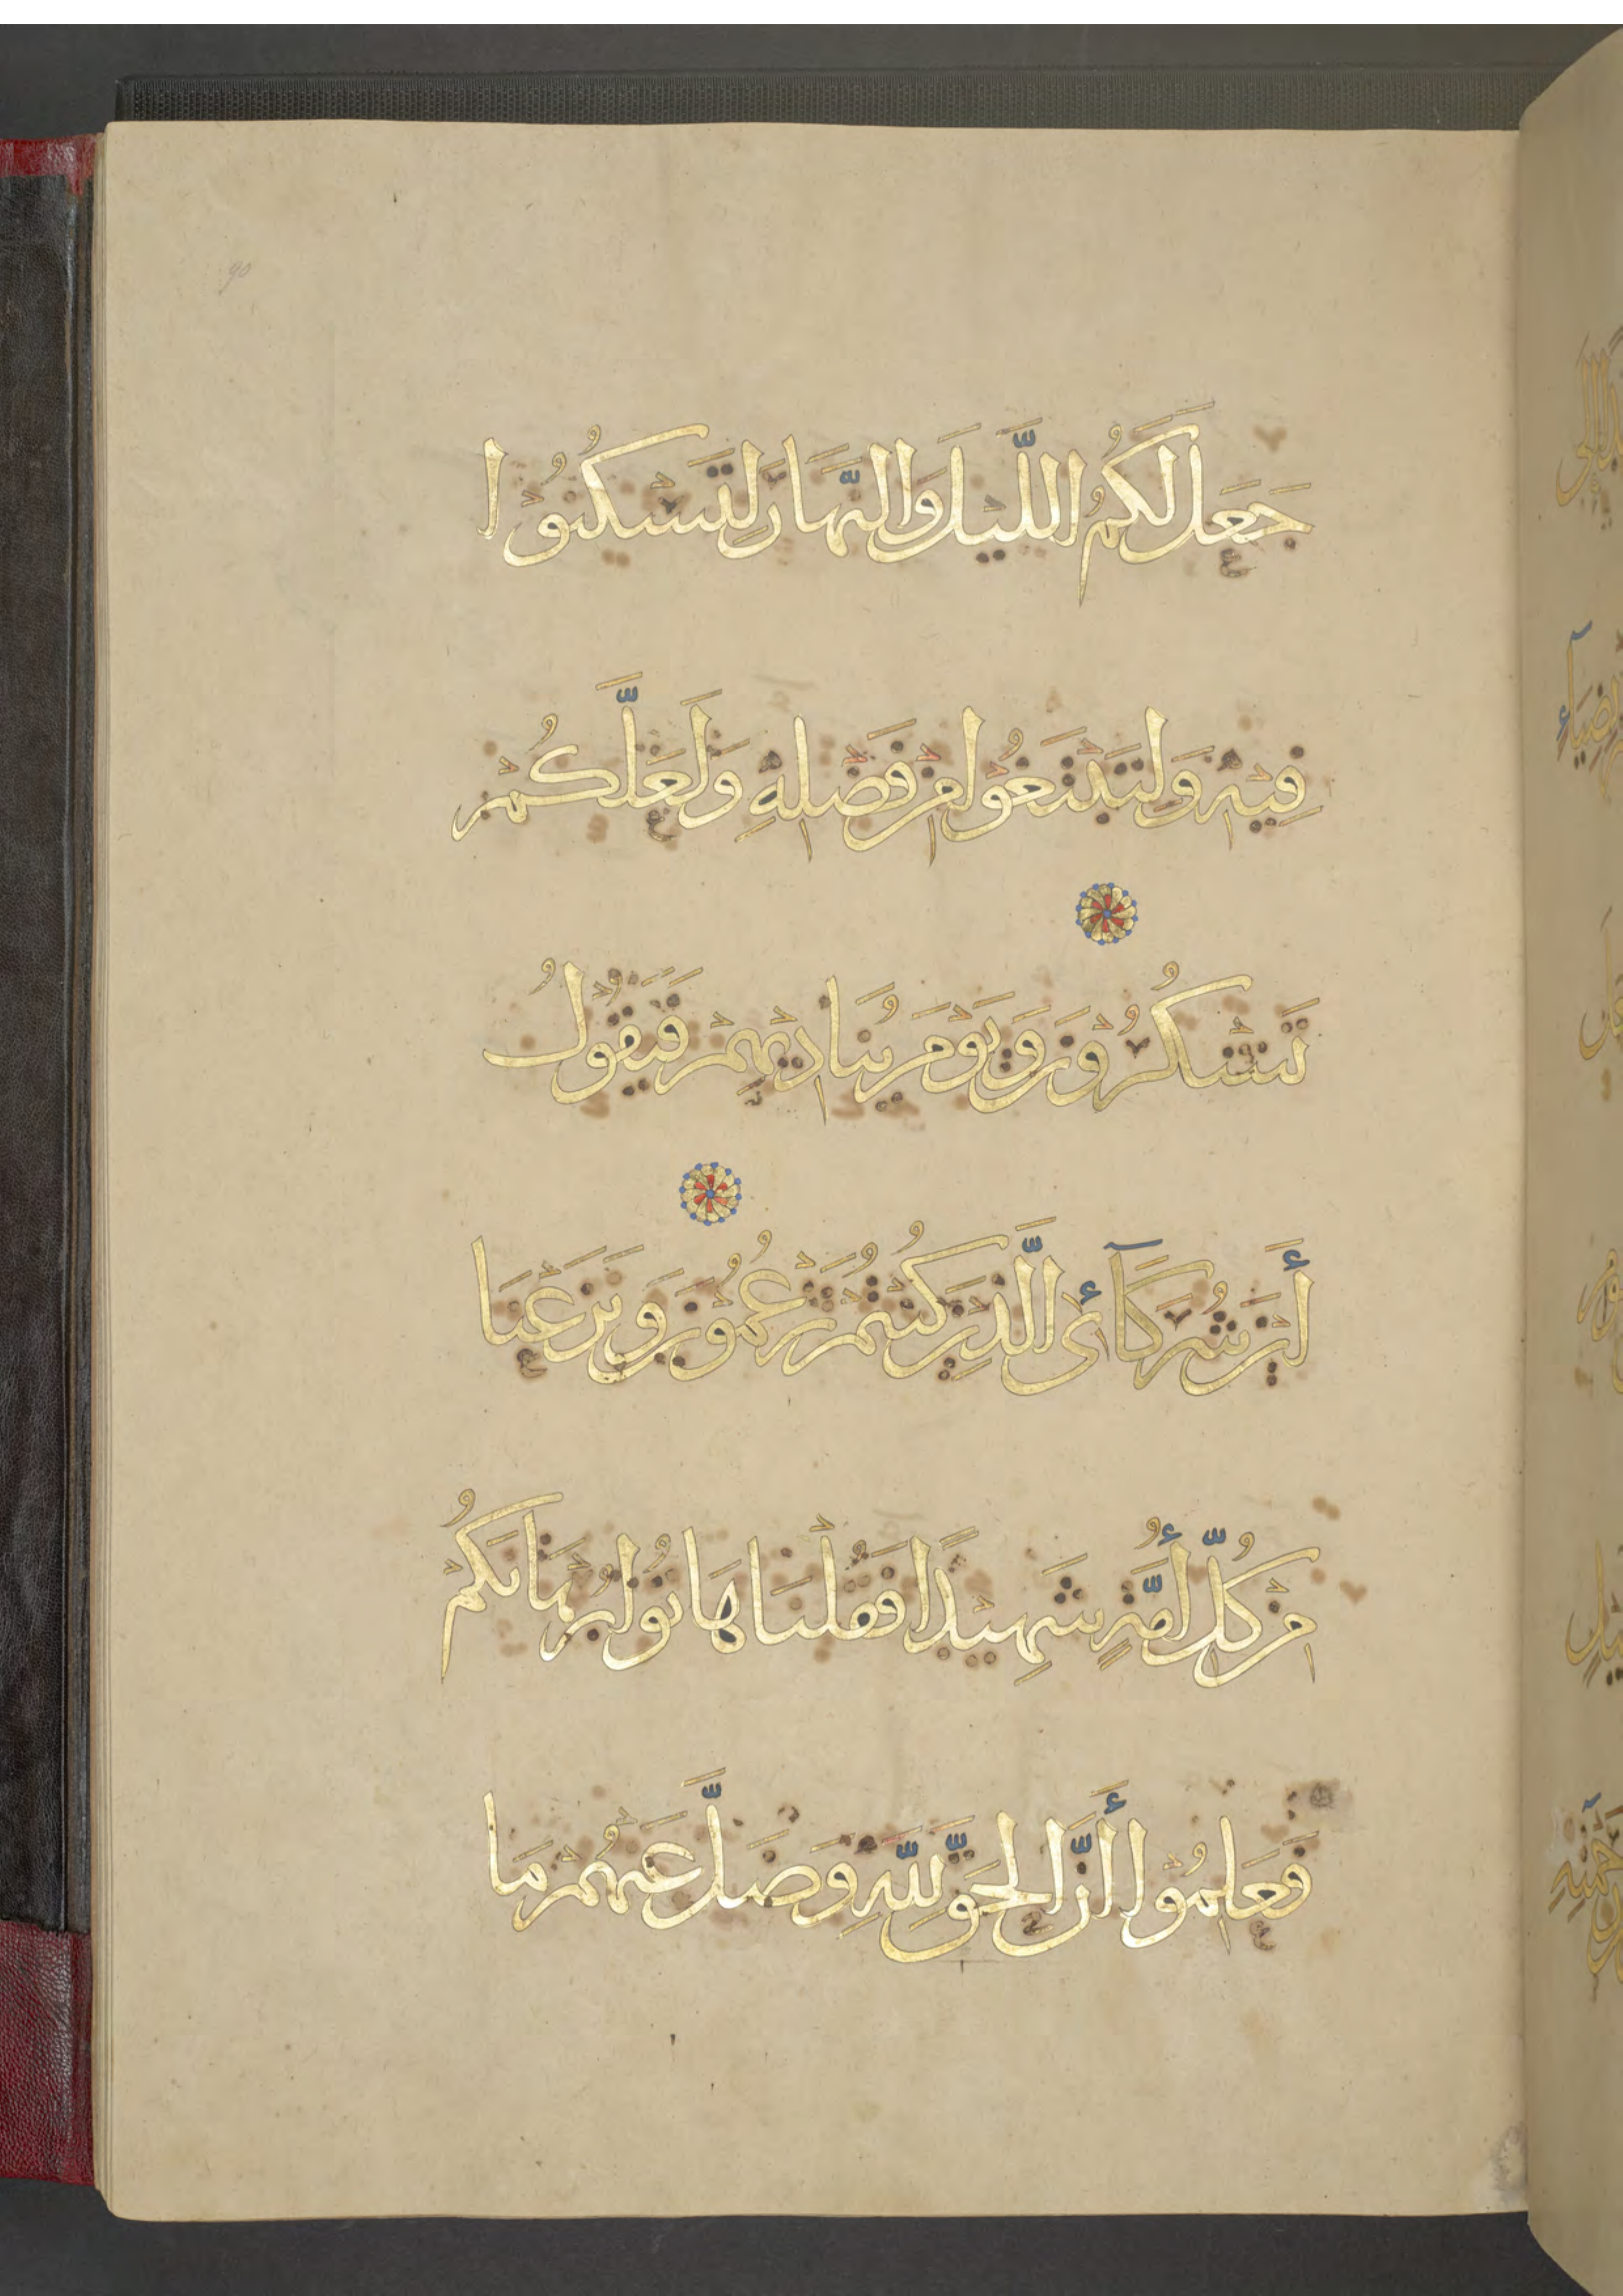 90
جَعَلَ لَكُمُ اللَّيْلَ وَالنَّهَارَ لِتَسْكُنُوْا
فِيْهِ وَلِتَبْتَغُوْا مِنْ فَضْلِهِ وَلَعَلَّكُمْ
تَشْكُرُوْنَ وَيَوْمَ يُنَادِيْهِمْ فَيَقُوْلُ
أَيْنَ شُرَكَآئِىَ الَّذِيْنَ كُنْتُمْ تَزْعُمُوْنَ وَنَزَعْنَا
مِنْ كُلِّ أُمَّةٍ شَهِيْدًا فَقُلْنَا هَاتُوْا بُرْهَانَكُمْ
فَعَلِمُوْا أَنَّ الْحَقَّ لِلَّهِ وَضَلَّ عَنْهُمْ مَا